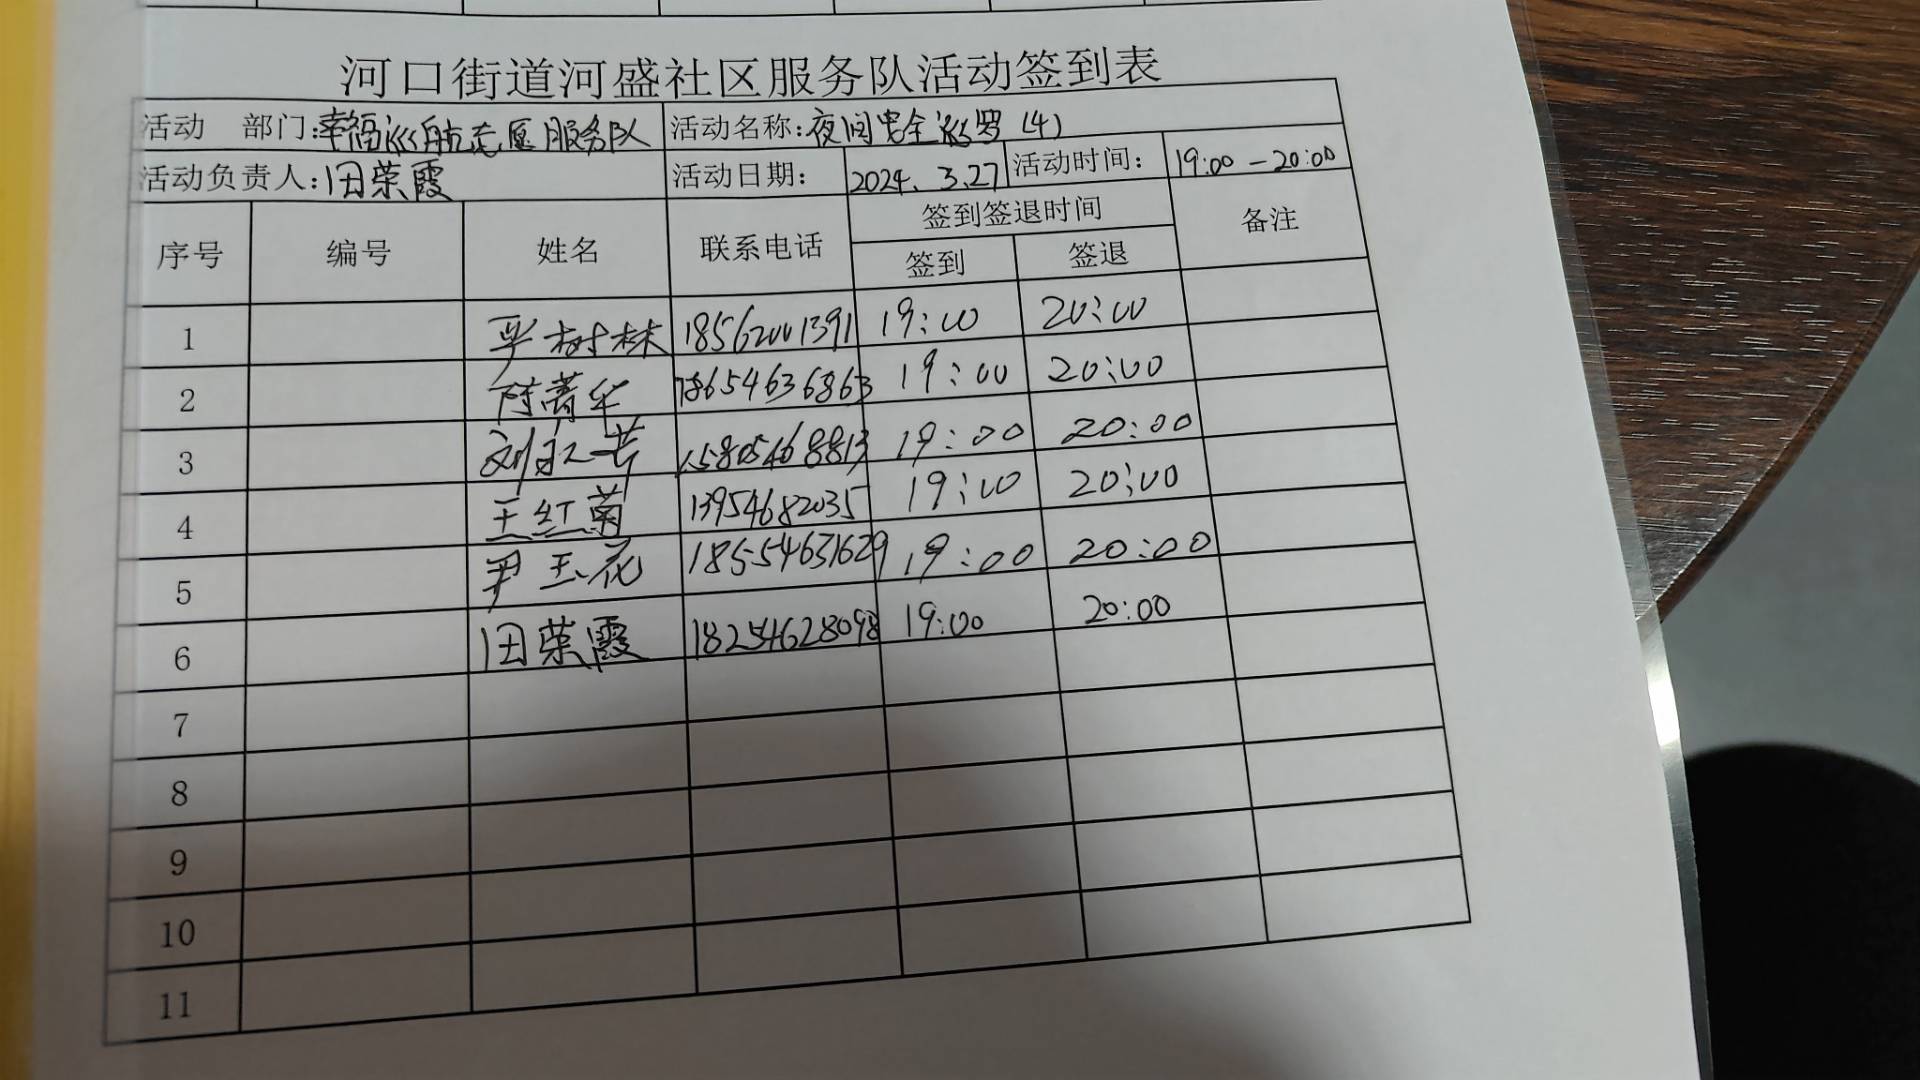 河口街道河盛社区服务队活动签到表
活动 部门：幸福巡航志愿服务队 活动名称：夜间安全巡罗（4）
活动负责人：田荣霞 活动日期： 2024.3.27 活动时间： 19:00-20:00
序号 编号 姓名 联系电话 签到签退时间 备注
签到 签退
1 树林 18562001391 19:00 20:00
2 陈菁华 18654636863 19:00 20:00
3 刘红芳 15805468813 19:00 20:00
4 王红菊 13954682035 19:00 20:00
5 尹玉花 18554631629 19:00 20:00
6 田荣霞 18254628098 19:00 20:00
7
8
9
10
11